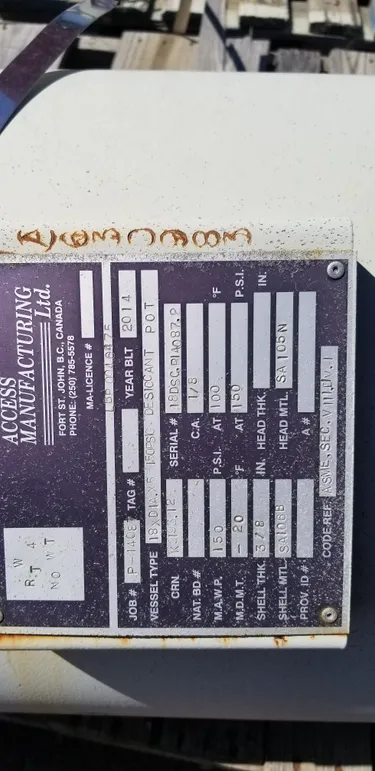 ACCESS
MANUFACTURING
Ltd.
FORT ST. JOHN, B.C., CANADA
PHONE: (250) 785-5578
W
R.T 4
NO W T
MA-LICENCE #
JOB # TAG # YEAR BLT 2014
VESSEL TYPE DESICCANT POT
CRN. SERIAL #
NAT. BD # C.A. 1/8
M.A.W.P. 150 P.S.I. AT 100 °F
M.D.M.T. -20 °F AT 150 P.S.I.
SHELL THK. 3/8 IN. HEAD THK. IN.
SHELL MTL. SA106B HEAD MTL. SA105N
PROV. ID # A #
CODE REF. ASME, SEC. VIII, DV. 1